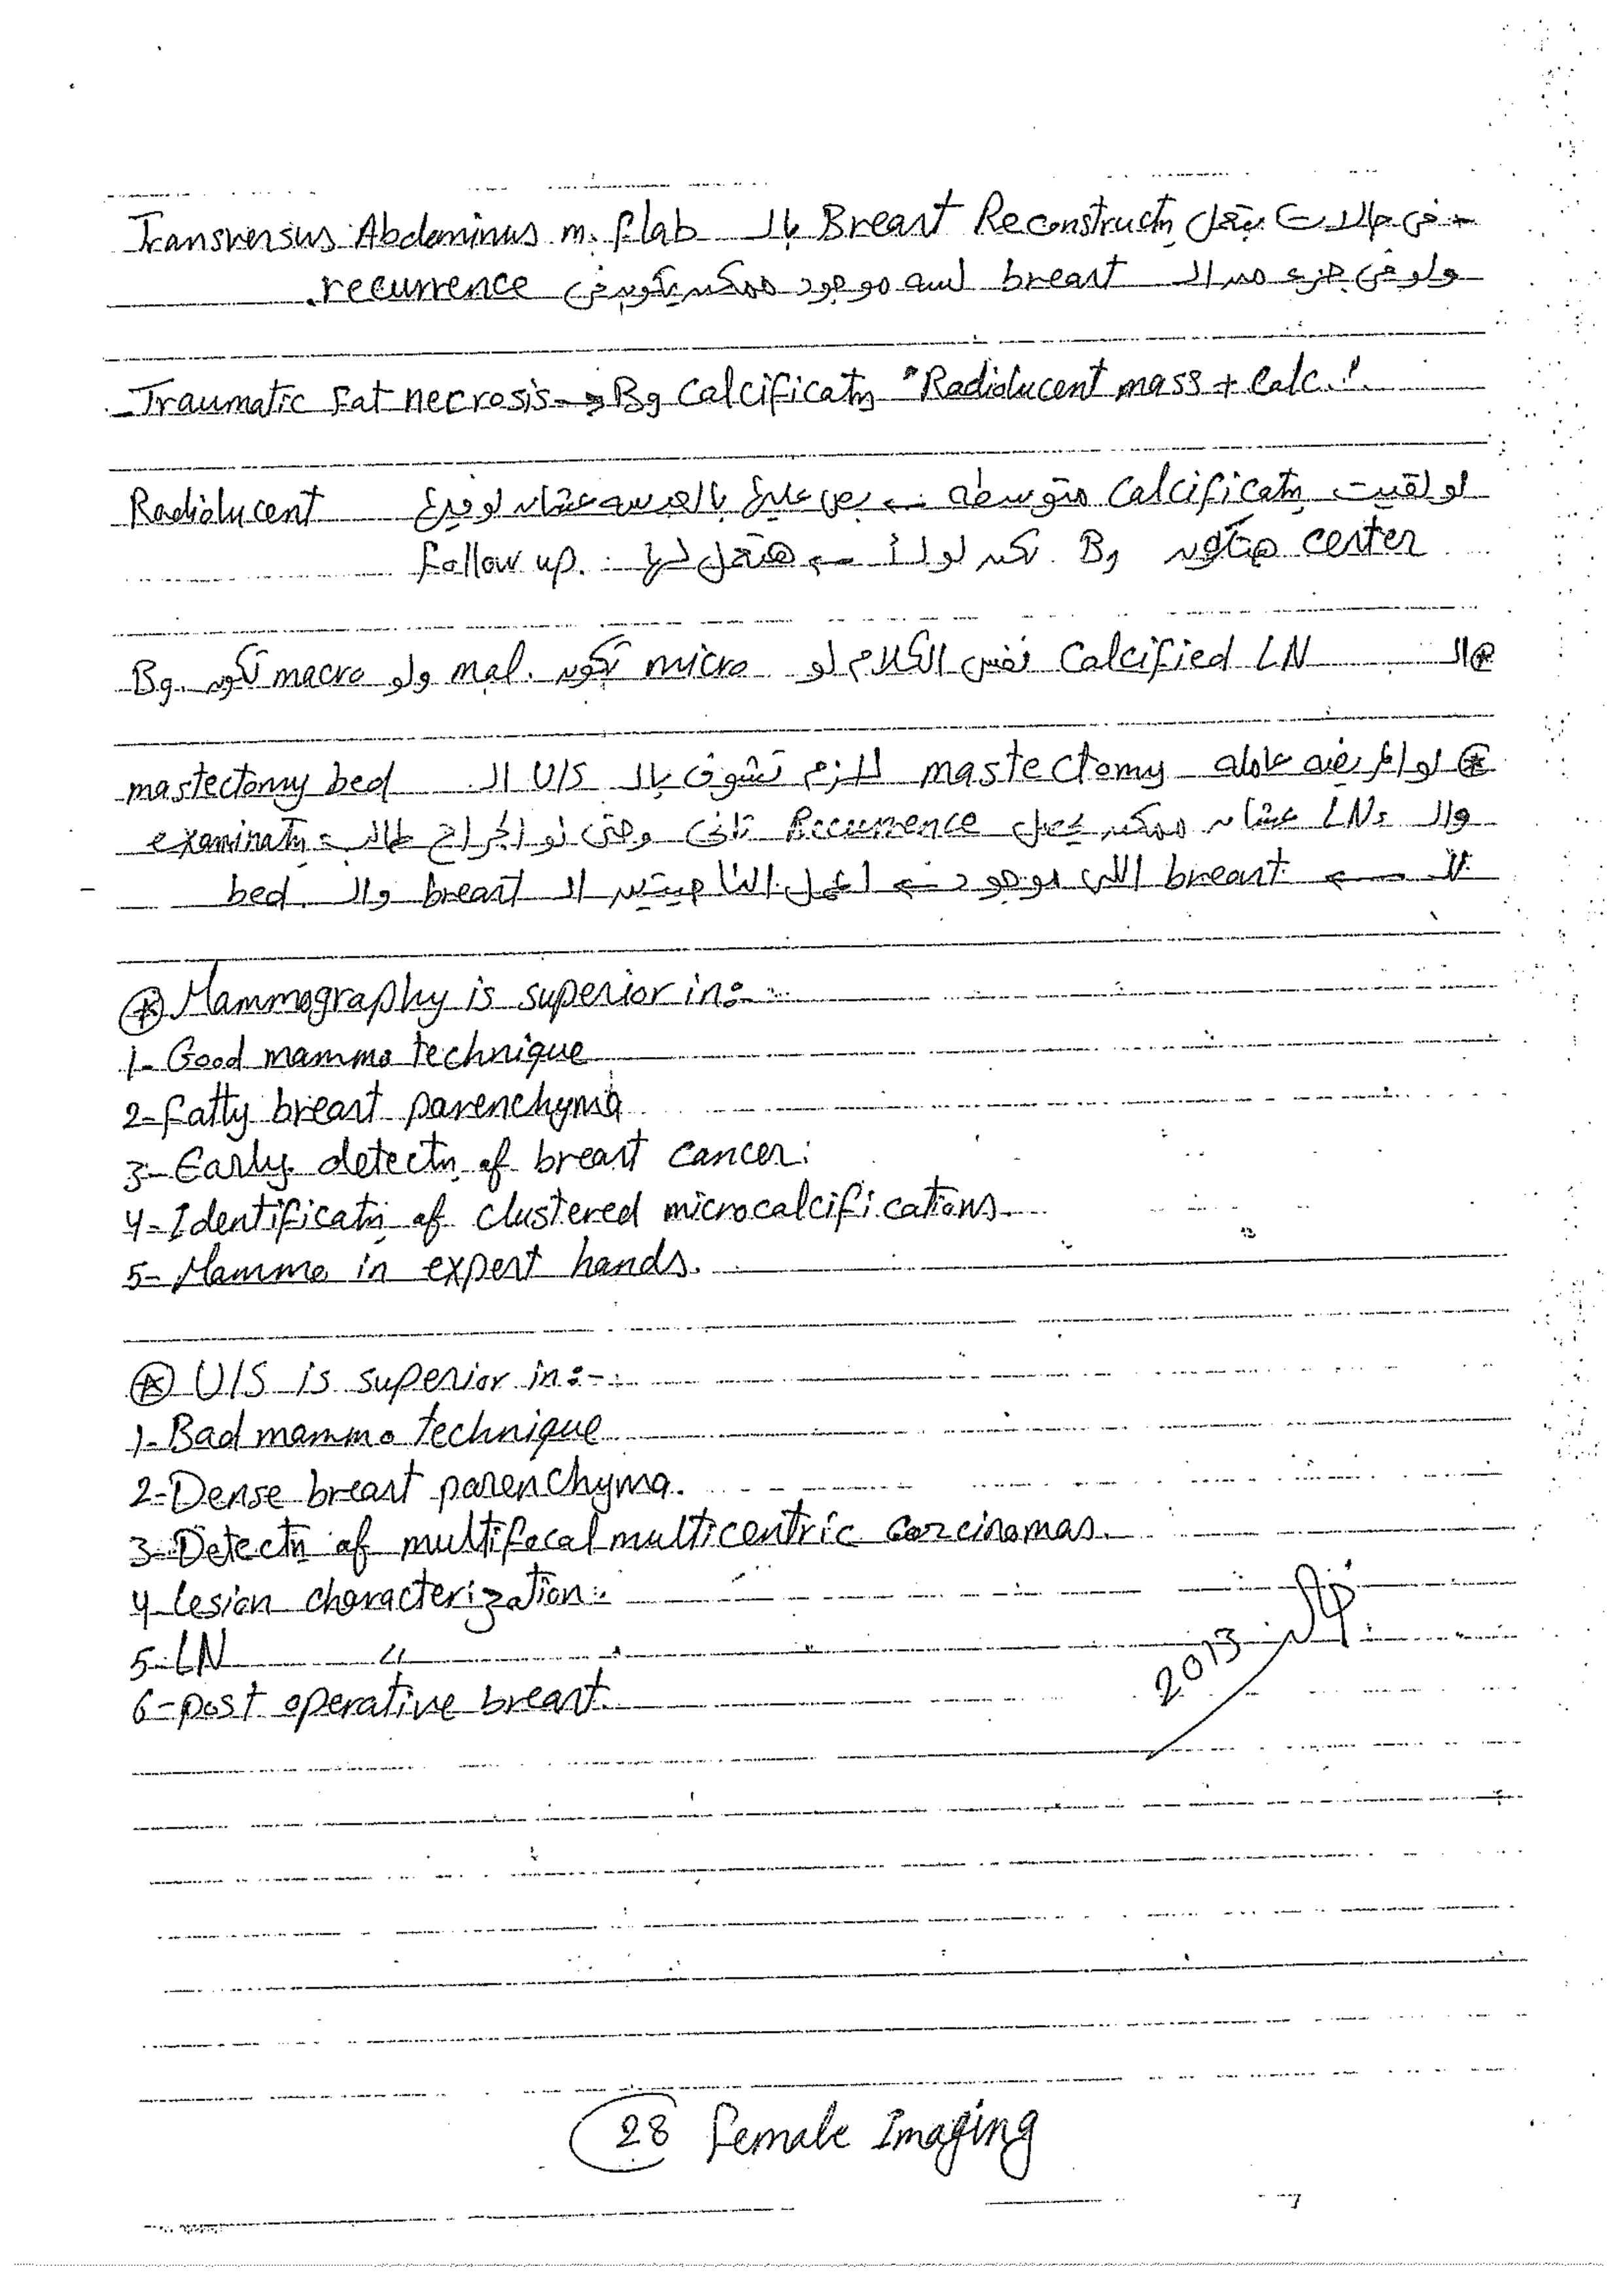 - فى حالات بتعمل Breast Reconstructn بالـ Transversus Abdominus m. flab
ولو فى جزء من الـ breast لسه موجود ممكن يكون فى recurrence.
- Traumatic Fat necrosis → Bg Calcificatn "Radiolucent mass + Calc."
لو لقيت Calcificatn متوسطه ← بص عليها بالعدسه عشان لو فيها Radiolucent
center هتكون Bg نكبر لو لأ ← هنعمل لها Follow up.
⊛ الـ Calcified LN نفس الكلام لو micro تكون mal. ولو macro تكون Bg.
⊛ لو المريضه عامله mastectomy لازم تشوف بالـ U/S الـ mastectomy bed
والـ LNs عشان ممكن يحصل Recurrence تانى وحتى لو الجراح طالب examinatn
للـ ← breast اللى موجود ← اعمل الناحيتين الـ breast والـ bed.
⊛ Mammography is superior in:-
1- Good mammo technique
2- Fatty breast parenchyma
3- Early detectn of breast cancer.
4- Identificatn of clustered microcalcifications.
5- Mammo in expert hands.
⊛ U/S is superior in:-
1- Bad mammo technique
2- Dense breast parenchyma.
3- Detectn of multifocal multicentric carcinomas.
4- Lesion characterization.
5- LN "
6- post operative breast.
2013
28 Female Imaging